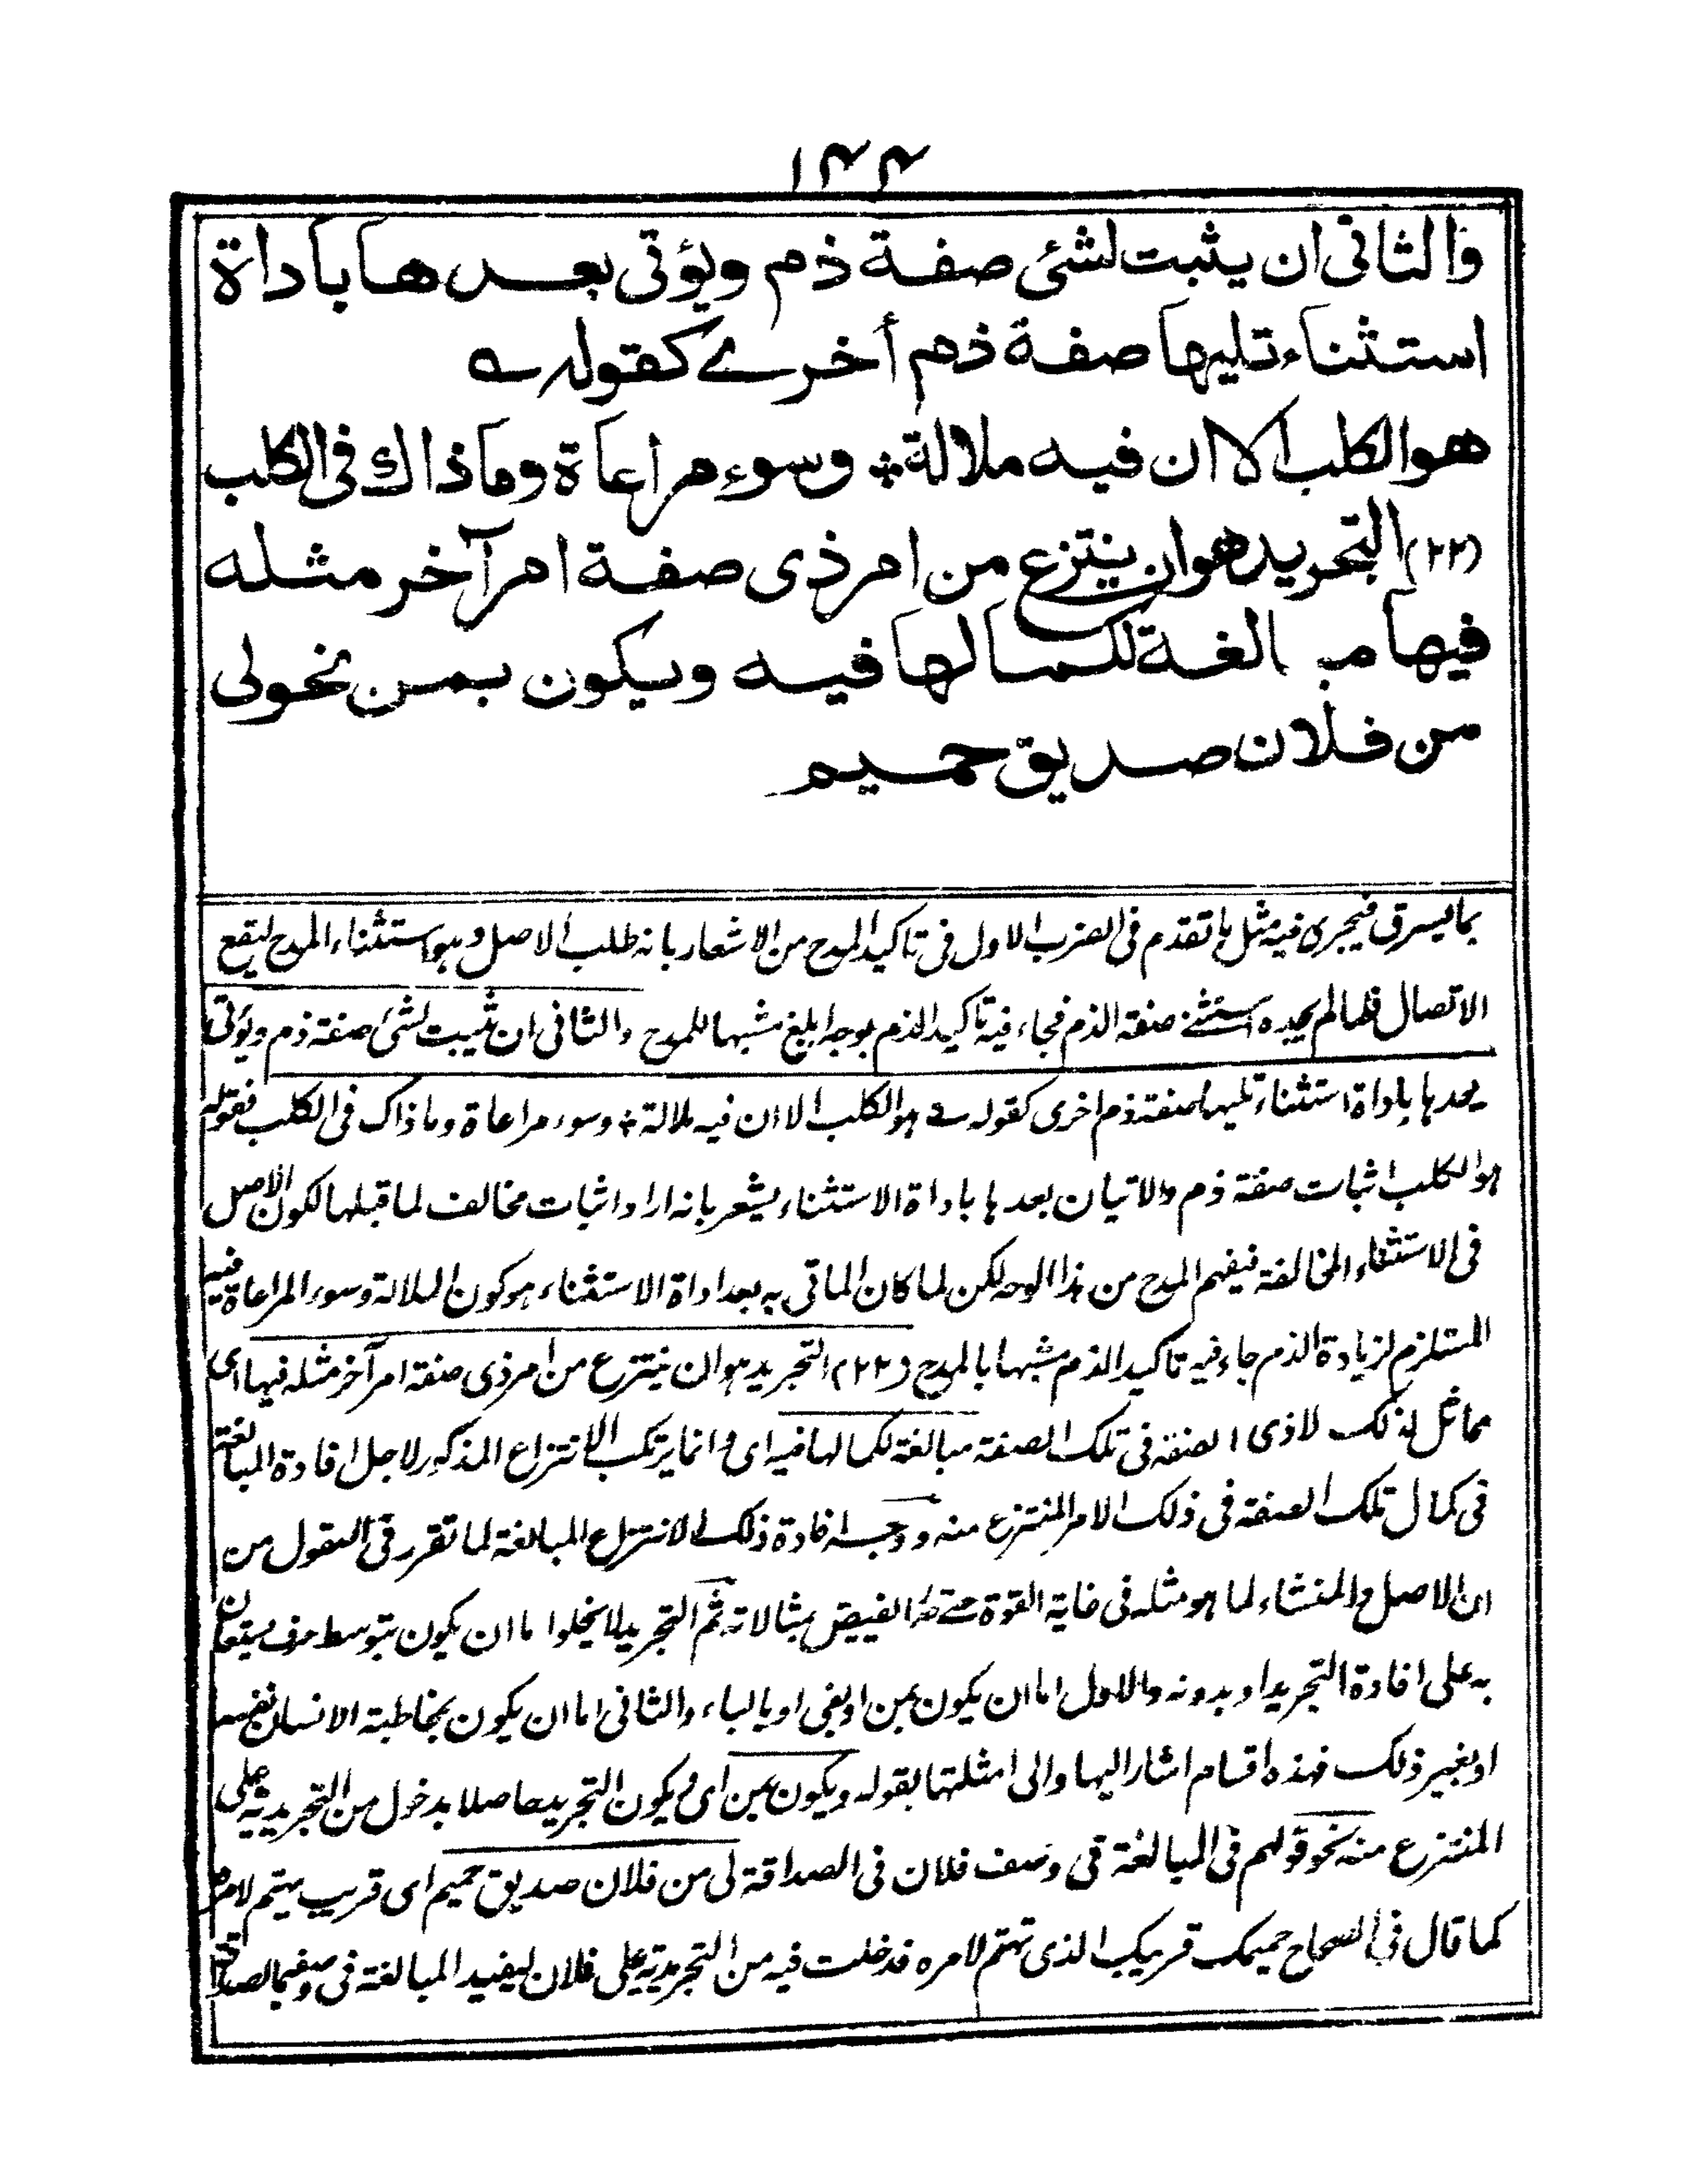 ١٤٤
والثانى ان يثبت لشئ صفة ذم ويؤتى بعدها باداة
استثناء تليها صفة ذم أخرے كقوله ؎
هو الكلب الا ان فيه ملالة ؞ وسوء مراعاة وما ذاك فى الكلب
(٢٢) التجريد هو ان ينتزع من امر ذى صفة امر آخر مثله
فيها مبالغة لكمالها فيه ويكون بمن نحو لى
من فلان صديق حميم
بما يسرق فيجرى فيه مثل ما تقدم فى الضرب الاول فى تاكيد المدح من الاشعار بانه طلب الاصل وهو استثناء المدح ليقع
الاتصال فلما لم يجده استثنے صفة الذم فجاء فيه تاكيد الذم بوجه ابلغ مشبها للمدح والثانى ان يثبت لشئ صفة ذم ويؤتى
بعدها باداة استثناء تليها صفة ذم اخرى كقوله ؎ هو الكلب الا ان فيه ملالة ؞ وسوء مراعاة وما ذاك فى الكلب فقوله
هو الكلب اثبات صفة ذم والاتيان بعدها باداة الاستثناء يشعر بانه اراد اثبات مخالف لما قبلها لكون الاصل
فى الاستثناء المخالفة فيفهم المدح من هذا الوجه لكن لما كان الماتى به بعد اداة الاستثناء هو كون الملالة وسوء المراعاة فيه
المستلزم لزيادة الذم جاء فيه تاكيد الذم مشبها بالمدح (٢٢) التجريد هو ان ينتزع من امر ذى صفة امر آخر مثله فيها اى
مماثل لذلك لاذى الصفة فى تلك الصفة مبالغة لكمالها فيه اى وانما يرتكب الانتزاع المذكور لاجل افادة المبالغة
فى كمال تلك الصفة فى ذلك الامر المنتزع منه ووجه افادة ذلك الانتزاع المبالغة لما تقرر فى العقول من
ان الاصل والمنشاء لما هو مثله فى غاية القوة حتے الفيض بمثالاته ثم التجريد لا يخلوا ما ان يكون بتوسط حرف يستعان
به على افادة التجريد او بدونه والاول اما ان يكون بمن او بفى او بالباء والثانى اما ان يكون بمخاطبة الانسان نفسه
او بغير ذلك فهذه اقسام اشار اليها والى امثلتها بقوله ويكون بمن اى ويكون التجريد حاصلا بدخول من التجريدية على
المنتزع منه نحو قولهم فى المبالغة فى وصف فلان فى الصداقة لى من فلان صديق حميم اى قريب يهتم لامره
كما قال فى الصحاح حميمك قريبك الذى تهتم لامره قد خلت فيه من التجريدية على فلان ليفيد المبالغة فى وصفه بالصداقة